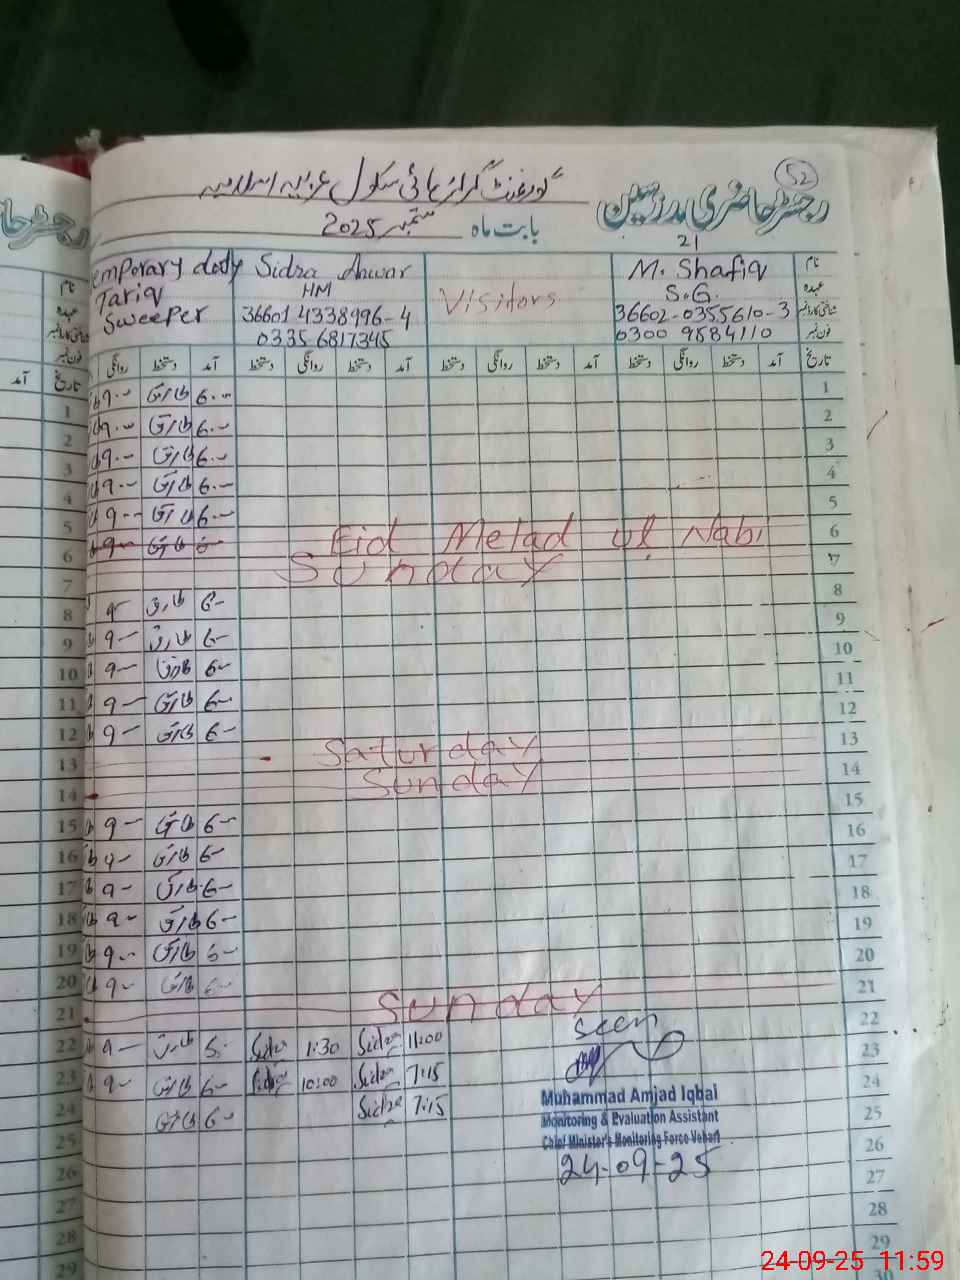 52
گورنمنٹ گرلز ہائی سکول عربیہ اسلامیہ
رجسٹر حاضری مدرسین
بابت ماہ ستمبر 2025
21
نام
عہدہ
شناختی کارڈ نمبر
فون نمبر
M. Shafiq
S.G.
36602-0355610-3
0300 9584110
Visitors
Sidra Anwar
HM
36601 4338996-4
0335 6817345
emporary doty
Tariq
Sweeper
تاریخ آمد دستخط روانگی دستخط آمد دستخط روانگی دستخط آمد دستخط روانگی دستخط آمد دستخط روانگی
1 ۹۔۔ طارق 6۔۔
2 ۹۔۔ طارق 6۔۔
3 ۹۔۔ طارق 6۔۔
4 ۹۔۔ طارق 6۔۔
5 ۹۔۔ طارق 6۔۔
6 Eid Melad ul Nabi
7 Sunday
8 ۹۔ طارق 6۔
9 ۹۔ طارق 6۔
10 ۹۔ طارق 6۔
11 ۹۔ طارق 6۔
12 ۹۔ طارق 6۔
13 Saturday
14 Sunday
15 ۹۔ طارق 6۔
16 ۹۔ طارق 6۔
17 ۹۔ طارق 6۔
18 ۹۔ طارق 6۔
19 ۹۔ طارق 6۔
20 ۹۔ طارق 6۔
21 Sunday
22 ۹۔ طارق Sidra 1:30 Sidra 11:00
23 ۹۔ طارق 6۔ 10:00 Sidra 7:15
24 طارق 6۔ Sidra 7:15
25
26
27
28
29
30
Seen
Muhammad Amjad Iqbal
Monitoring & Evaluation Assistant
Chief Minister's Monitoring Force Vehari
24-09-25
24-09-25 11:59